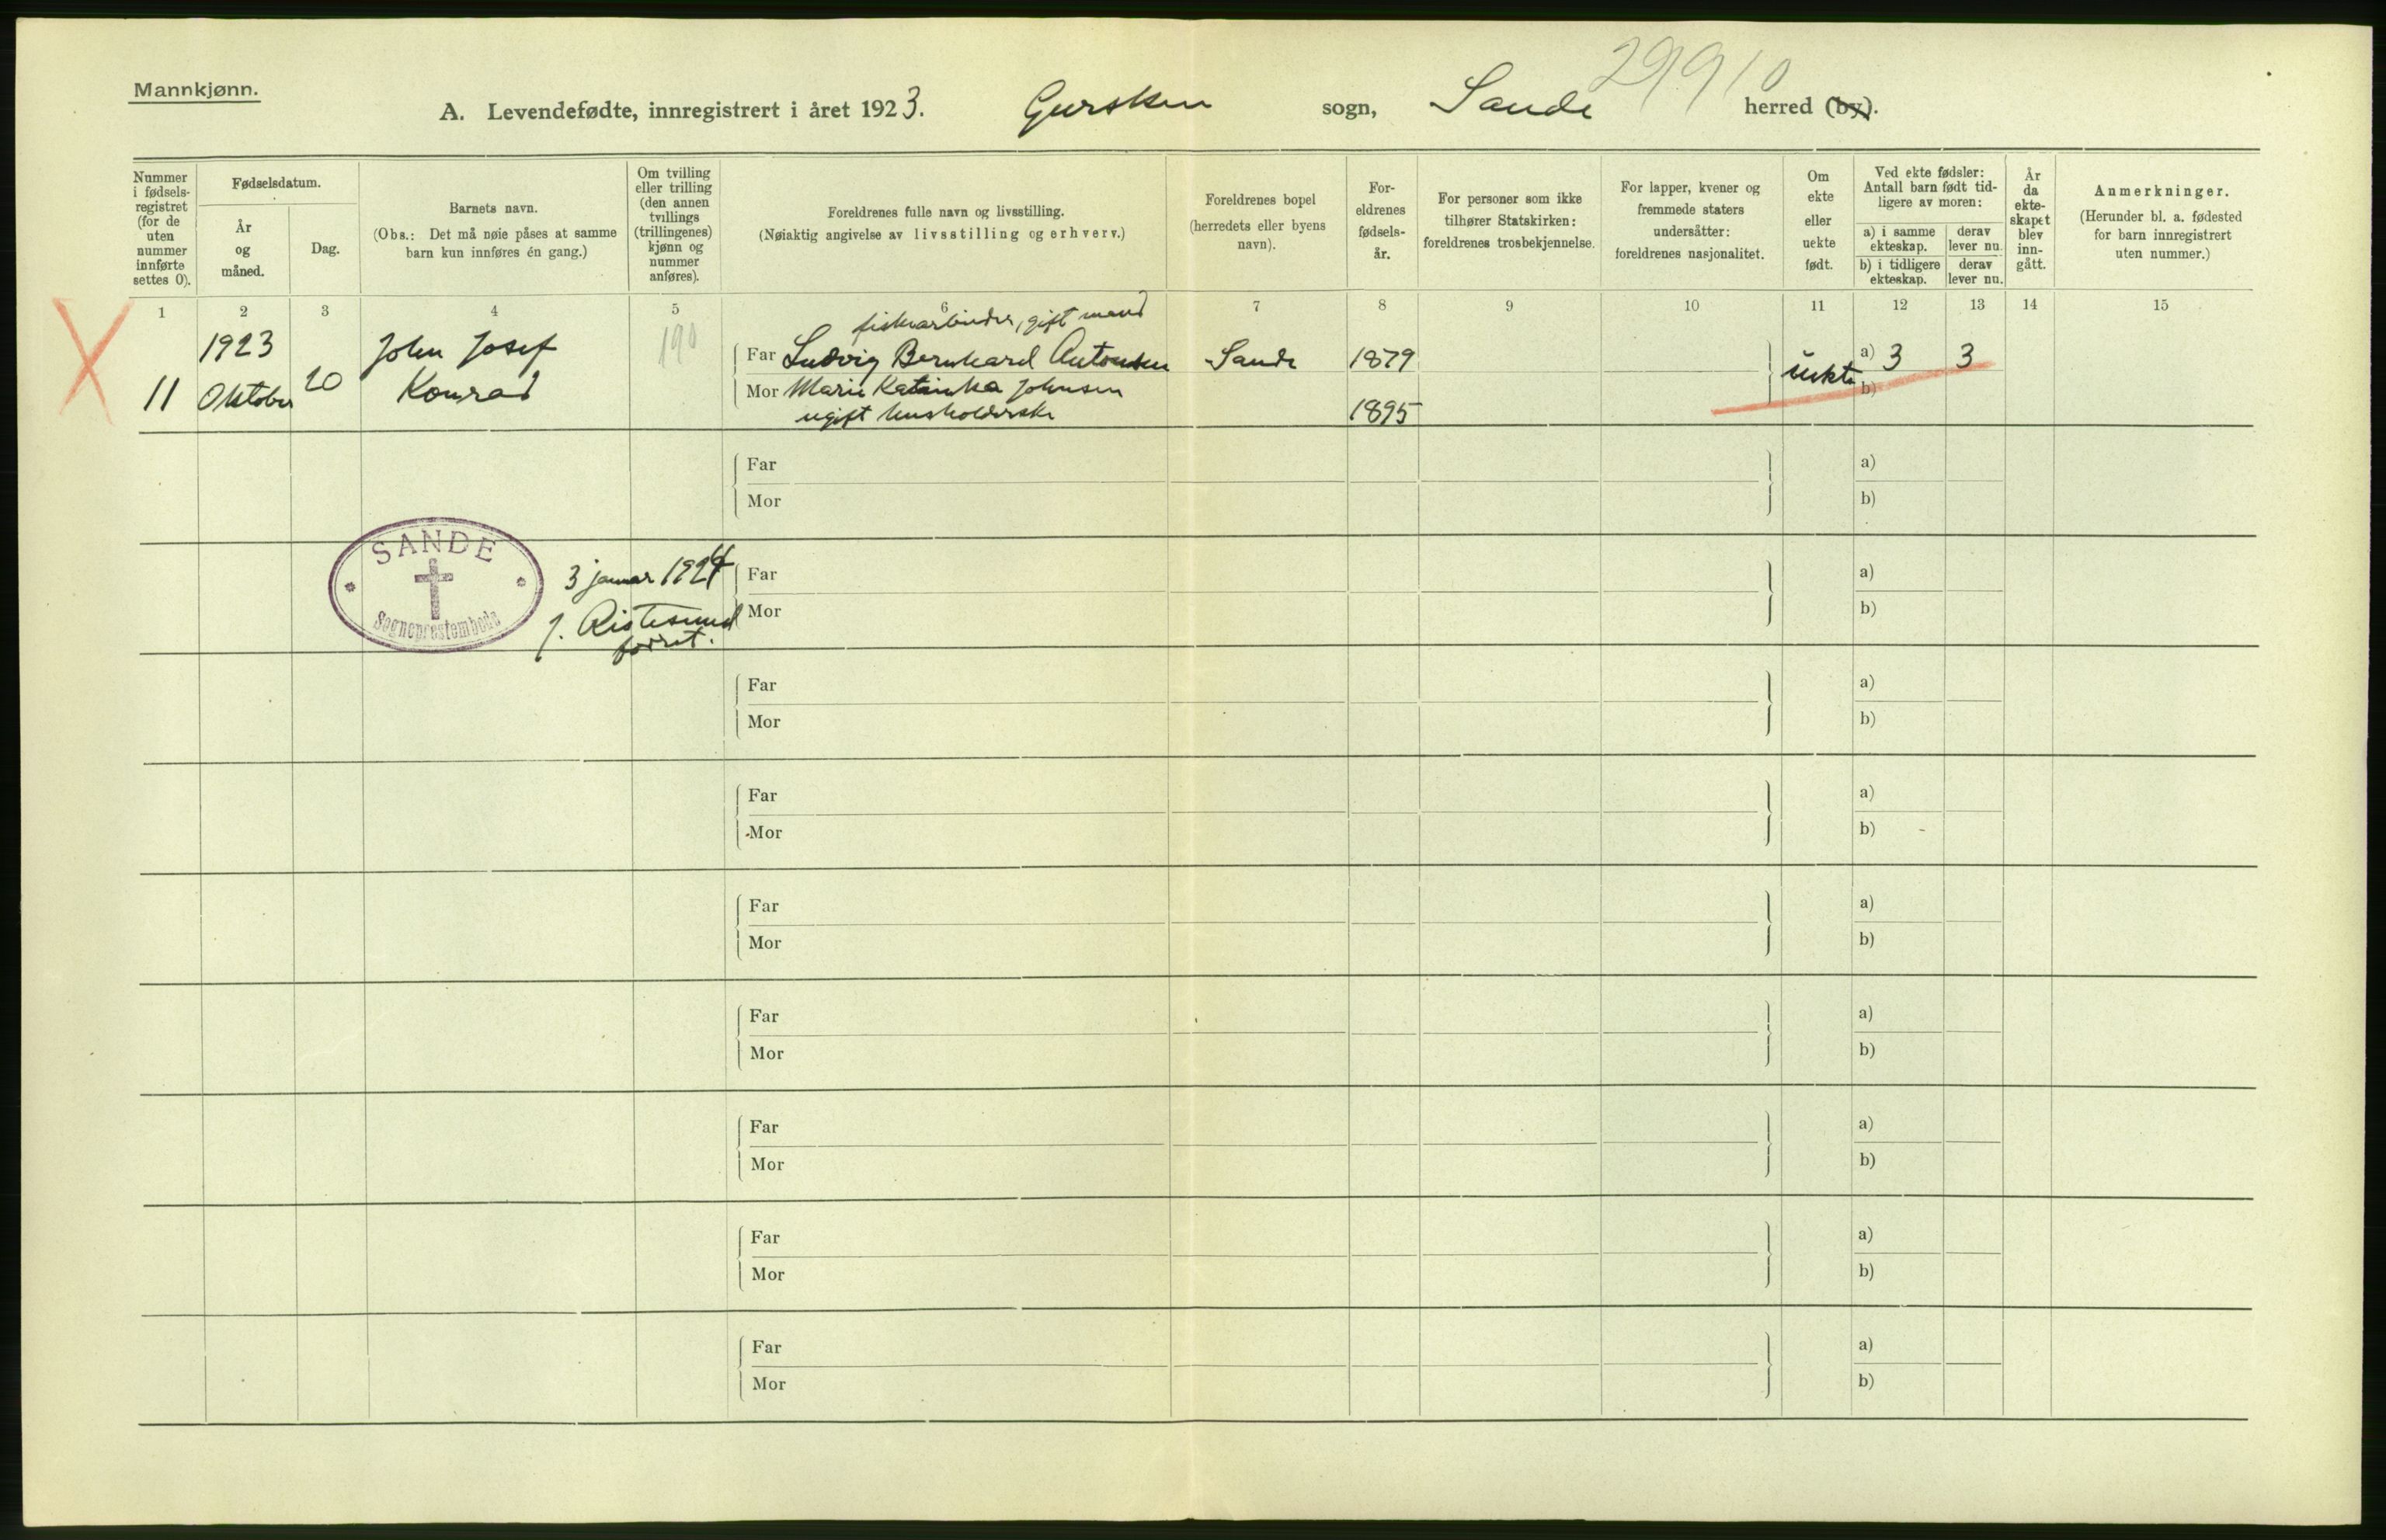 Mannkjønn.
29910
A. Levendefødte, innregistrert i året 1923. Gursken sogn, Sande herred (by).
Nummer i fødsels- registret (for de uten nummer innførte settes 0).
Fødselsdatum.
År og måned.
Dag.
Barnets navn.
(Obs.: Det må nøie påses at samme barn kun innføres én gang.)
Om tvilling eller trilling (den annen tvillings (trillingenes) kjønn og nummer anføres).
Foreldrenes fulle navn og livsstilling.
(Nøiaktig angivelse av livsstilling og erhverv.)
Foreldrenes bopel
(herredets eller byens navn).
For- eldrenes fødsels- år.
For personer som ikke tilhører Statskirken: foreldrenes trosbekjennelse.
For lapper, kvener og fremmede staters undersåtter: foreldrenes nasjonalitet.
Om ekte eller uekte født.
Ved ekte fødsler: Antall barn født tid- ligere av moren:
a) i samme ekteskap.
derav lever nu.
b) i tidligere ekteskap.
derav lever nu.
År da ekte- skapet blev inn- gått.
Anmerkninger.
(Herunder bl. a. fødested for barn innregistrert uten nummer.)
1 2 3 4 5 6 7 8 9 10 11 12 13 14 15
gift mand
1923 John Josef 190 Far Ludvig Bernhard Antonsen Sande 1879 uekte a) 3 3
11 Oktober 20 Konrad Mor Marie Katinka Johnsen b)
ugift husholderske 1895
Far a)
Mor b)
SANDE
Sogneprestembede
3 januar 1924
J. Ristesund
forret.
Far a)
Mor b)
Far a)
Mor b)
Far a)
Mor b)
Far a)
Mor b)
Far a)
Mor b)
Far a)
Mor b)
Far a)
Mor b)
Far a)
Mor b)